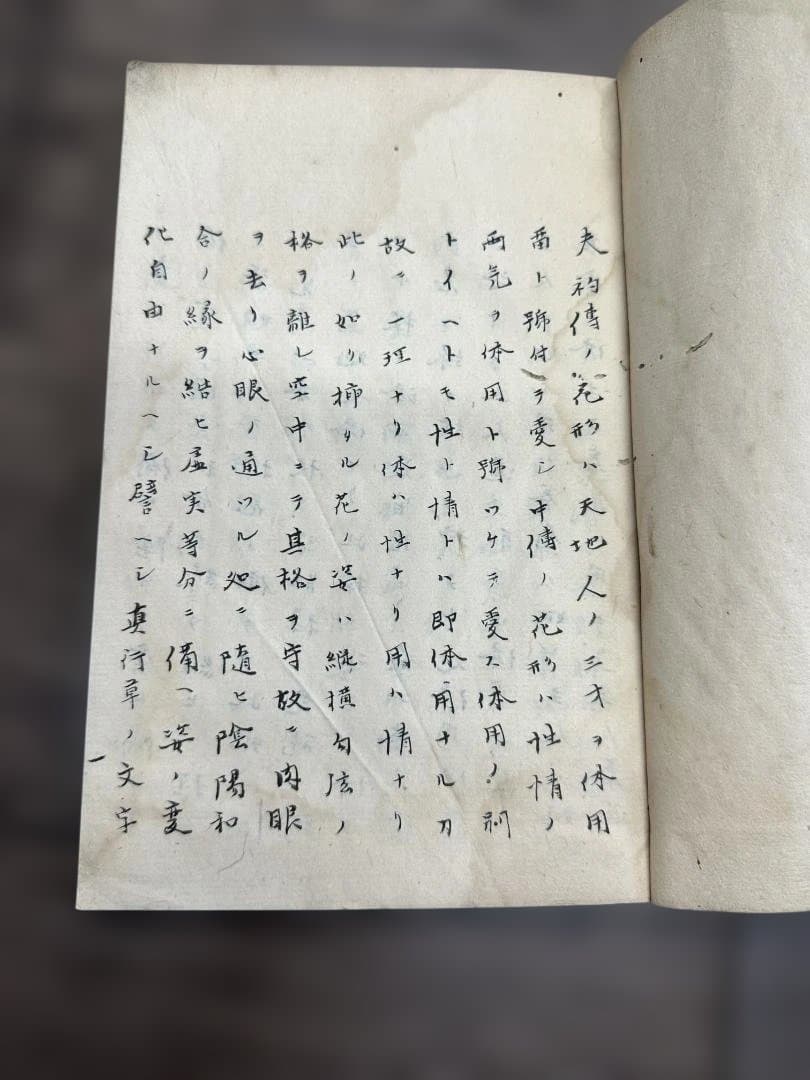 夫初傳ノ花形ハ天地人ノ三才ヲ体用
留ト號付テ愛シ中傳ノ花形ハ性情ノ
両気ヲ体用ト號ツケテ愛ス体用ノ別
トイヘトモ性ト情トハ即体用ナル
故ニ一理ナリ体ハ性ナリ用ハ情ナリ
此ノ如リ挿タル花ノ姿ハ縦横勾弦ノ
格ヲ離レ空中ニテ其格ヲ守故ニ肉眼
ヲ去リ心眼ノ通ツル処ニ随ヒ陰陽和
合ノ縁ヲ結ヒ虚実等分ニ備ヘ姿ノ変
化自由ナルヘシ譬ヘシ真行草ノ文字